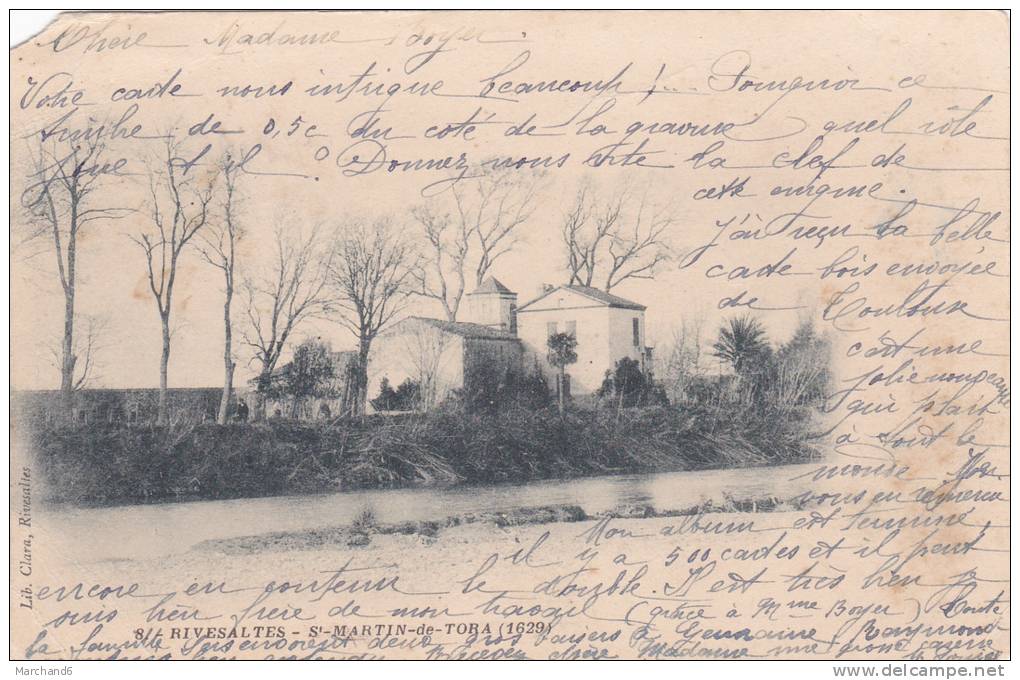 Chère Madame Boyer.
Votre carte nous intrigue beaucoup !... Pourquoi ce
timbre de 0,5c du coté de la gravure quel rôle
joue t il ? Donnez nous vite la clef de
cette enigme.
J'ai reçu la belle
carte bois envoyée
de Toulouse
c'est une
jolie nouveauté
qui plait
à tout le
monde
vous en remercie
Mon album est terminé,
il y a 500 cartes et il peut
encore en contenir le double. Il est très bien je
suis bien fière de mon travail (grâce à Mme Boyer) Toute
la famille vous envoient deux gros baisers à Germaine, Raymond
Recevez chère Madame une grosse caresse
8/- RIVESALTES - St-MARTIN-de-TORA (1629)
Lib. Clara, Rivesaltes
Marchand6
http://www.delcampe.net